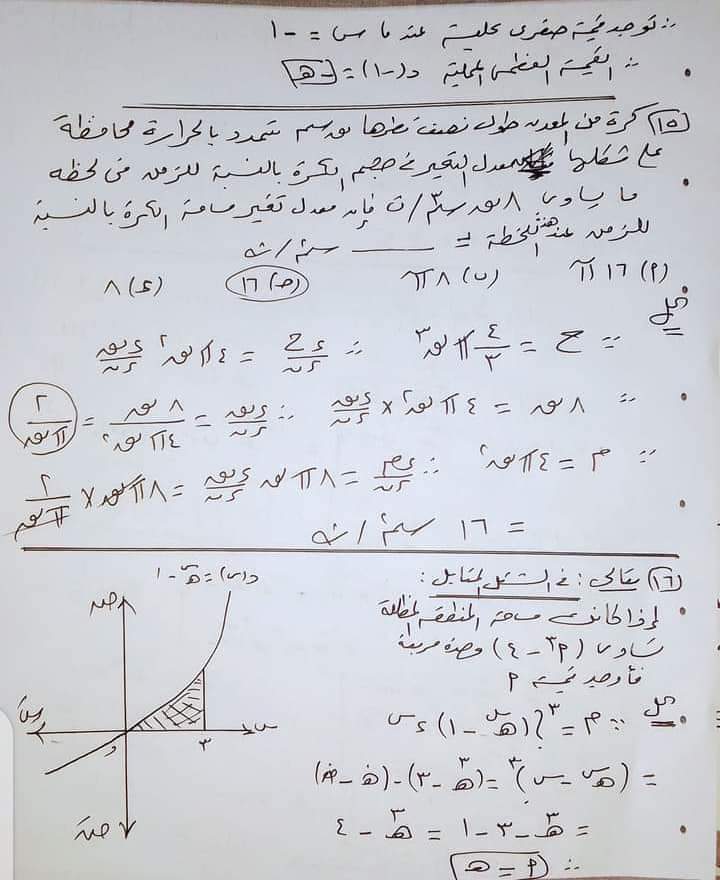 ∴ توجد قيمة صغرى محلية عند ما س = -١
∴ القيمة العظمى المحلية د(-١) = -هـ
(١٥) كرة من المعدن طول نصف قطرها نق سم تتمدد بالحرارة محافظة
على شكلها معدل التغير في حجم الكرة بالنسبة للزمن في لحظه
ما يساوى ٨ نق سم٣/ث فإن معدل تغير مساحة الكرة بالنسبة
للزمن عند هذه اللحظة = ـــــــ سم٢/ث
(٢) ١٦ π (ب) ٨ π (حـ) ١٦ (د) ٨
الحل
∵ ح = ٤/٣ π نق٣ ∴ ءح/ءن = ٤ π نق٢ ءنق/ءن
∴ ٨ نق = ٤ π نق٢ × ءنق/ءن ∴ ءنق/ءن = ٨ نق/٤ π نق٢ = ٢/π نق
∵ م = ٤ π نق٢ ∴ ءم/ءن = ٨ π نق ءنق/ءن = ٨ π نق × ٢/π نق
= ١٦ سم٢/ث
(١٦) مقالى : في الشكل المقابل :
إذا كانت مساحة المنطقة المظللة
تساوى (٢^٣ - ٤) وحدة مربعة
فأوجد قيمة ٢
الحل ∵ م = ∫٣ (هـ^س - ١) ءس
= (هـ^س - س)٣ = (هـ^٣ - ٣) - (هـ^٠ - ٠)
= هـ^٣ - ٣ - ١ = هـ^٣ - ٤
∴ ٢ = هـ
د(س) = هـ^س - ١
ص
س
سَ
و
٣
صَ